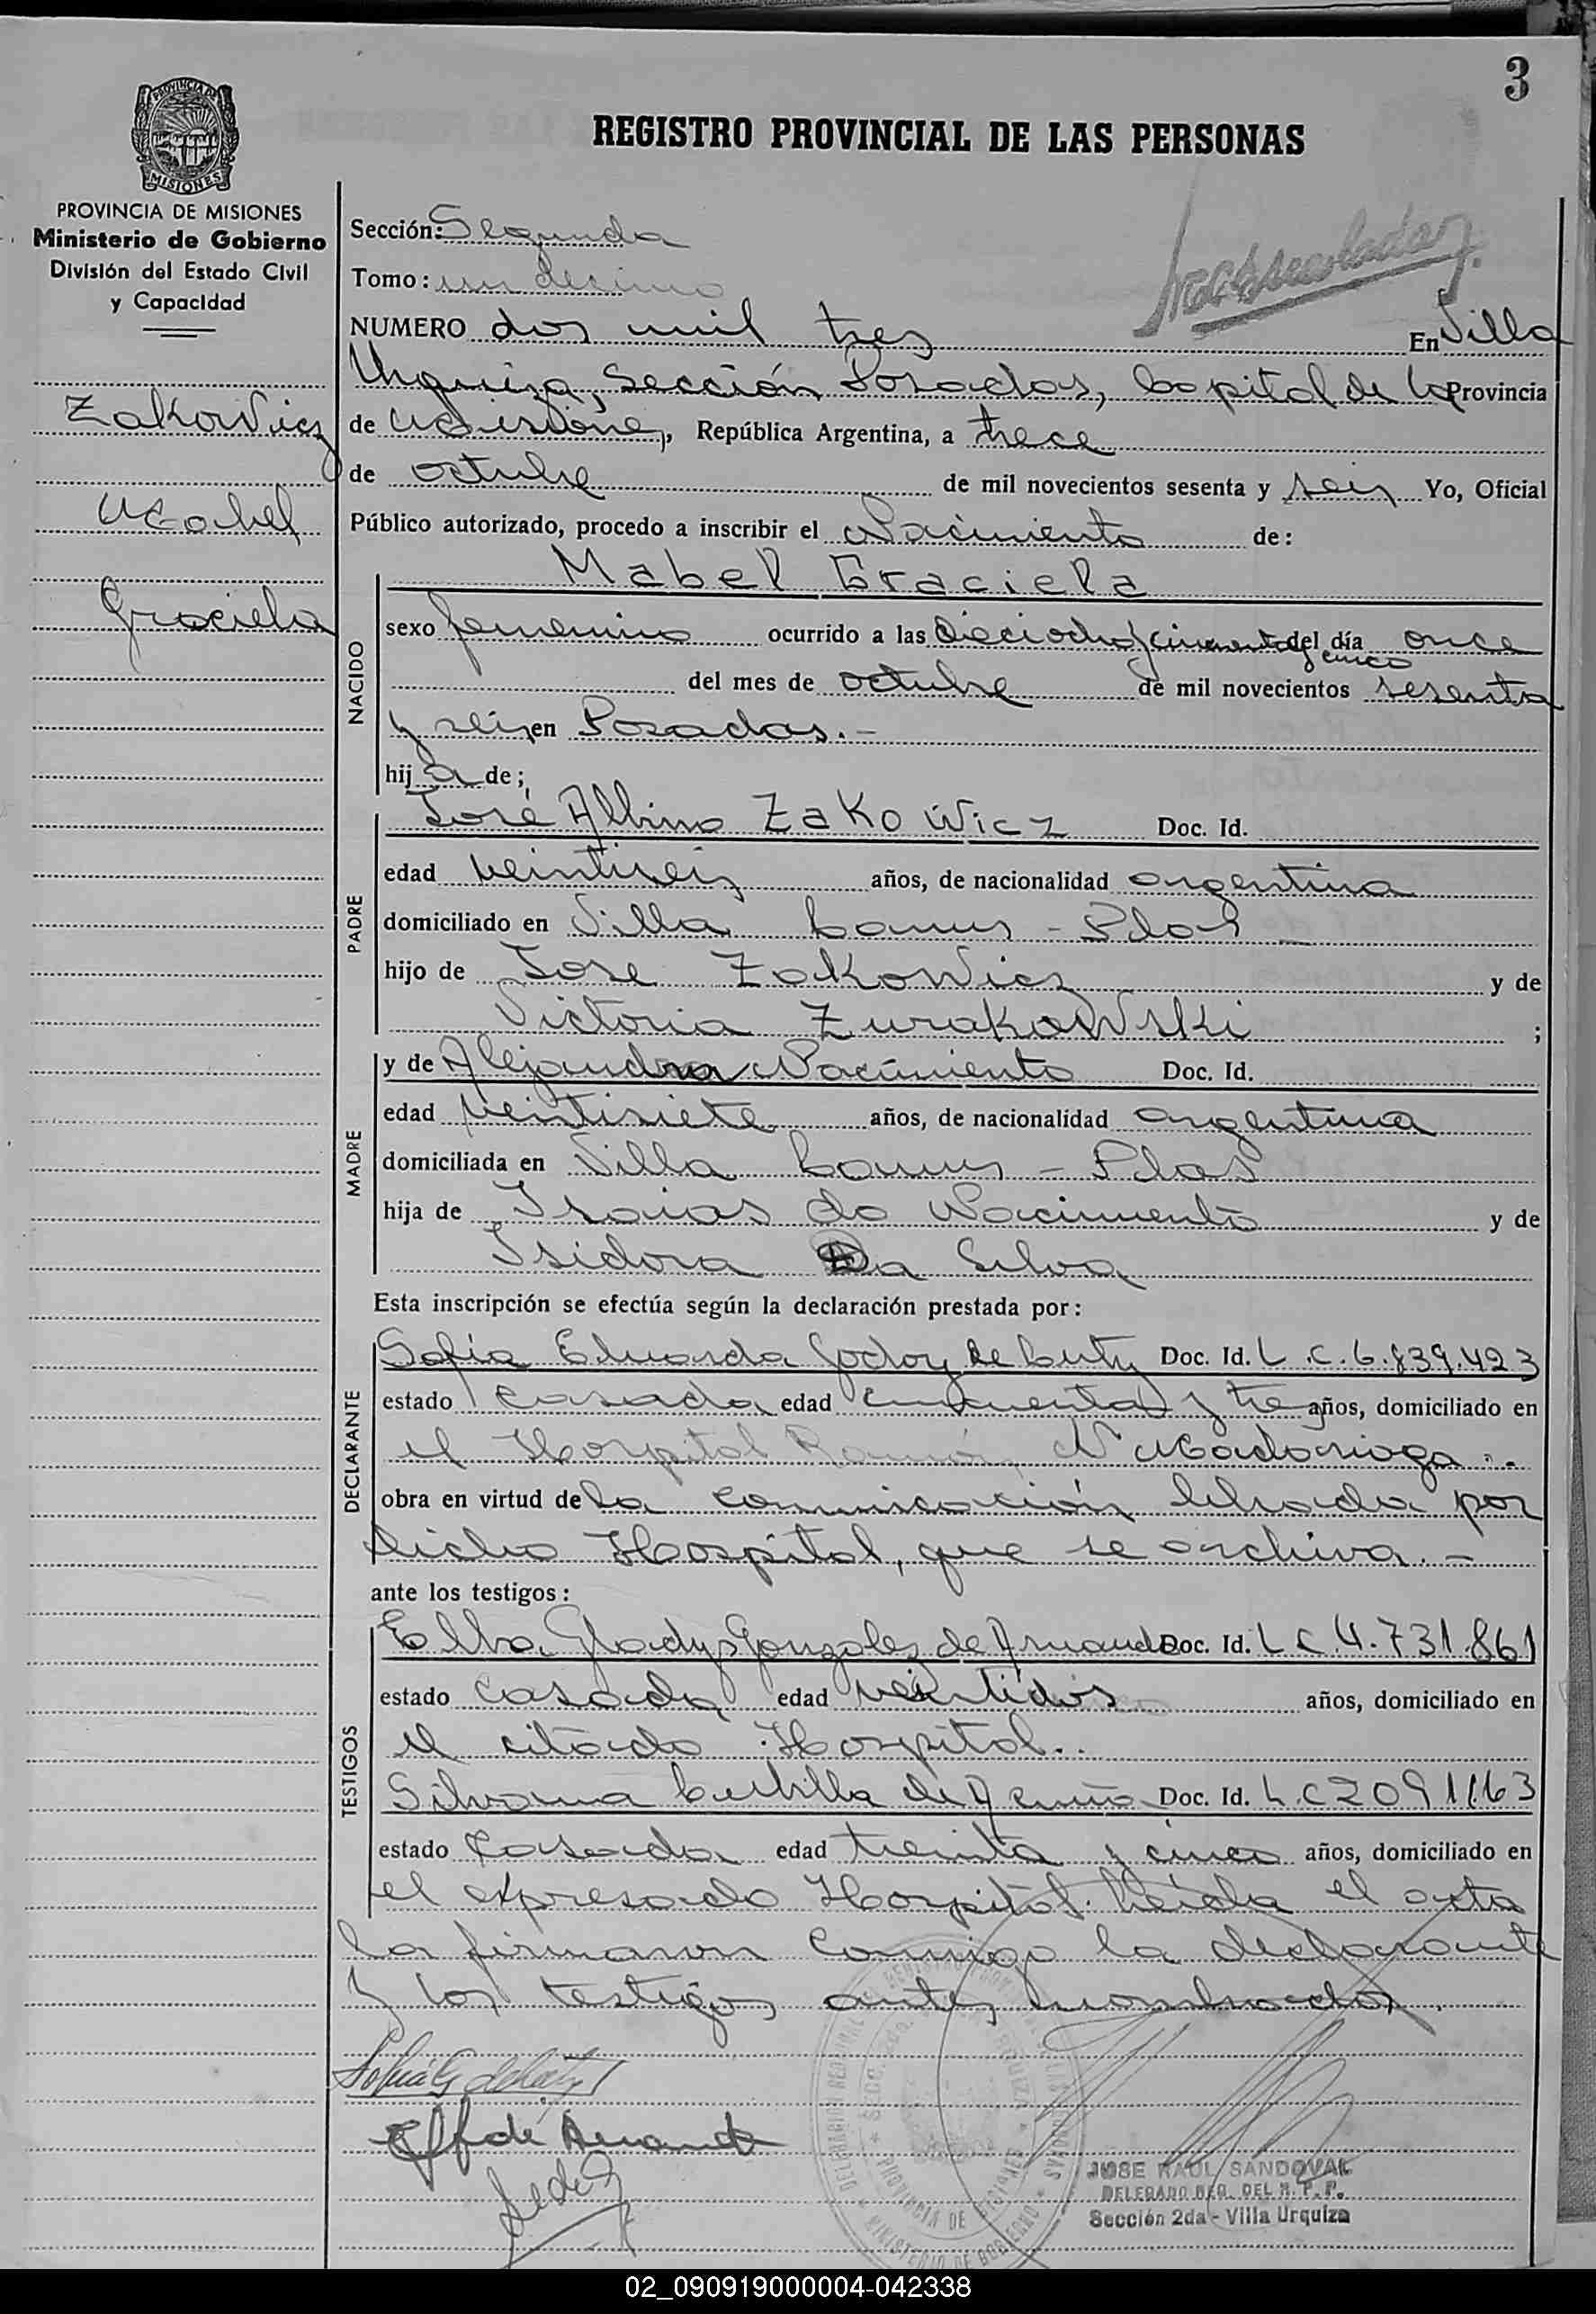 3
PROVINCIA DE
MISIONES
REGISTRO PROVINCIAL DE LAS PERSONAS
PROVINCIA DE MISIONES
Ministerio de Gobierno
División del Estado Civil
y Capacidad
Zakowicz
Mabel
Graciela
Sección: Segunda
Tomo: undécimo
NUMERO dos mil tres En Villa
Urquiza, Sección Posadas, Capital de la Provincia
de Misiones, República Argentina, a trece
de octubre de mil novecientos sesenta y seis Yo, Oficial
Público autorizado, procedo a inscribir el Nacimiento de:
NACIDO
Mabel Graciela
sexo femenino ocurrido a las dieciocho y cincuenta y cinco del día once
del mes de octubre de mil novecientos sesenta
y seis en Posadas.-
hija de;
PADRE
José Albino Zakowicz Doc. Id.
edad veintiseis años, de nacionalidad argentina
domiciliado en Villa Lanus - Pdas
hijo de Jose Zakowicz y de
Victoria Zurakowski ;
MADRE
y de Alejandra Nacimiento Doc. Id.
edad veintisiete años, de nacionalidad argentina
domiciliada en Villa Lanus - Pdas
hija de Isaias do Nacimento y de
Isidora Da Silva
Esta inscripción se efectúa según la declaración prestada por:
DECLARANTE
Sofia Eduarda Godoy de Doc. Id. L.C. 6.839.423
estado casada edad cincuenta y tres años, domiciliado en
el Hospital Ramón Madariaga.-
obra en virtud de la comunicación librada por
dicho Hospital, que se archiva.-
ante los testigos:
TESTIGOS
Elba Gladys Gonzalez de Doc. Id. L C 4.731.861
estado casada edad veintidós años, domiciliado en
el citado Hospital..
Silvana de Doc. Id. L.C 2091163
estado casada edad treinta y cinco años, domiciliado en
el expresado Hospital. Leida el acta
la firmaron conmigo la declarante
y los testigos antes nombrados.
JOSE RAUL SANDOVAL
DELEGADO REG. DEL R. P. P.
Sección 2da - Villa Urquiza
02_090919000004-042338